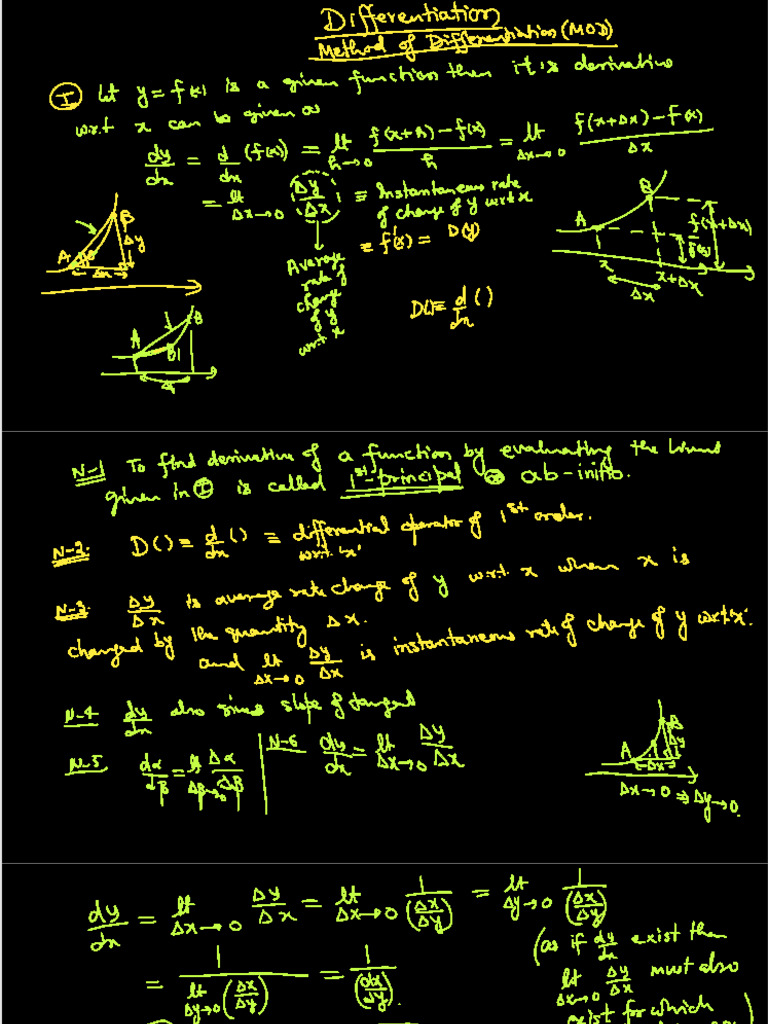 Differentiation
Method of Differentiation (MOD)
(I) Let y = f(x) is a given function then it is derivative
w.r.t x can be given as
dy/dx = d/dx (f(x)) = lt h→0 (f(x+h) − f(x))/h = lt Δx→0 (f(x+Δx) − f(x))/Δx
= lt Δx→0 Δy/Δx ≡ Instantaneous rate
of change of y w.r.t x
≡ f'(x) = D(y)
Average
rate of
change
of y
w.r.t x
D() ≡ d/dx ()
A B Δy Δx
A B B1
A B x x+Δx Δx f(x) f(x+Δx)
N-1 To find derivative of a function by evaluating the
given in (I) is called 1st-principal or ab-initio.
N-2: D() ≡ d/dx () ≡ differential operator of 1st order.
w.r.t 'x'
N-3: Δy/Δx is average rate change of y w.r.t. x when x is
changed by the quantity Δx.
and lt Δx→0 Δy/Δx is instantaneous rate of change of y w.r.t 'x'.
N-4 dy/dx also gives slope of tangent
N-5 dα/dβ = lt Δβ→0 Δα/Δβ
N-6 dy/dx = lt Δx→0 Δy/Δx
A B Δy Δx
Δx→0 ⇒ Δy→0.
dy/dx = lt Δx→0 Δy/Δx = lt Δx→0 1/(Δx/Δy) = lt Δy→0 1/(Δx/Δy)
= 1/(lt Δy→0 (Δx/Δy)) = 1/(dx/dy).
(as if dy/dx exist then
lt Δx→0 Δy/Δx must also
exist for which